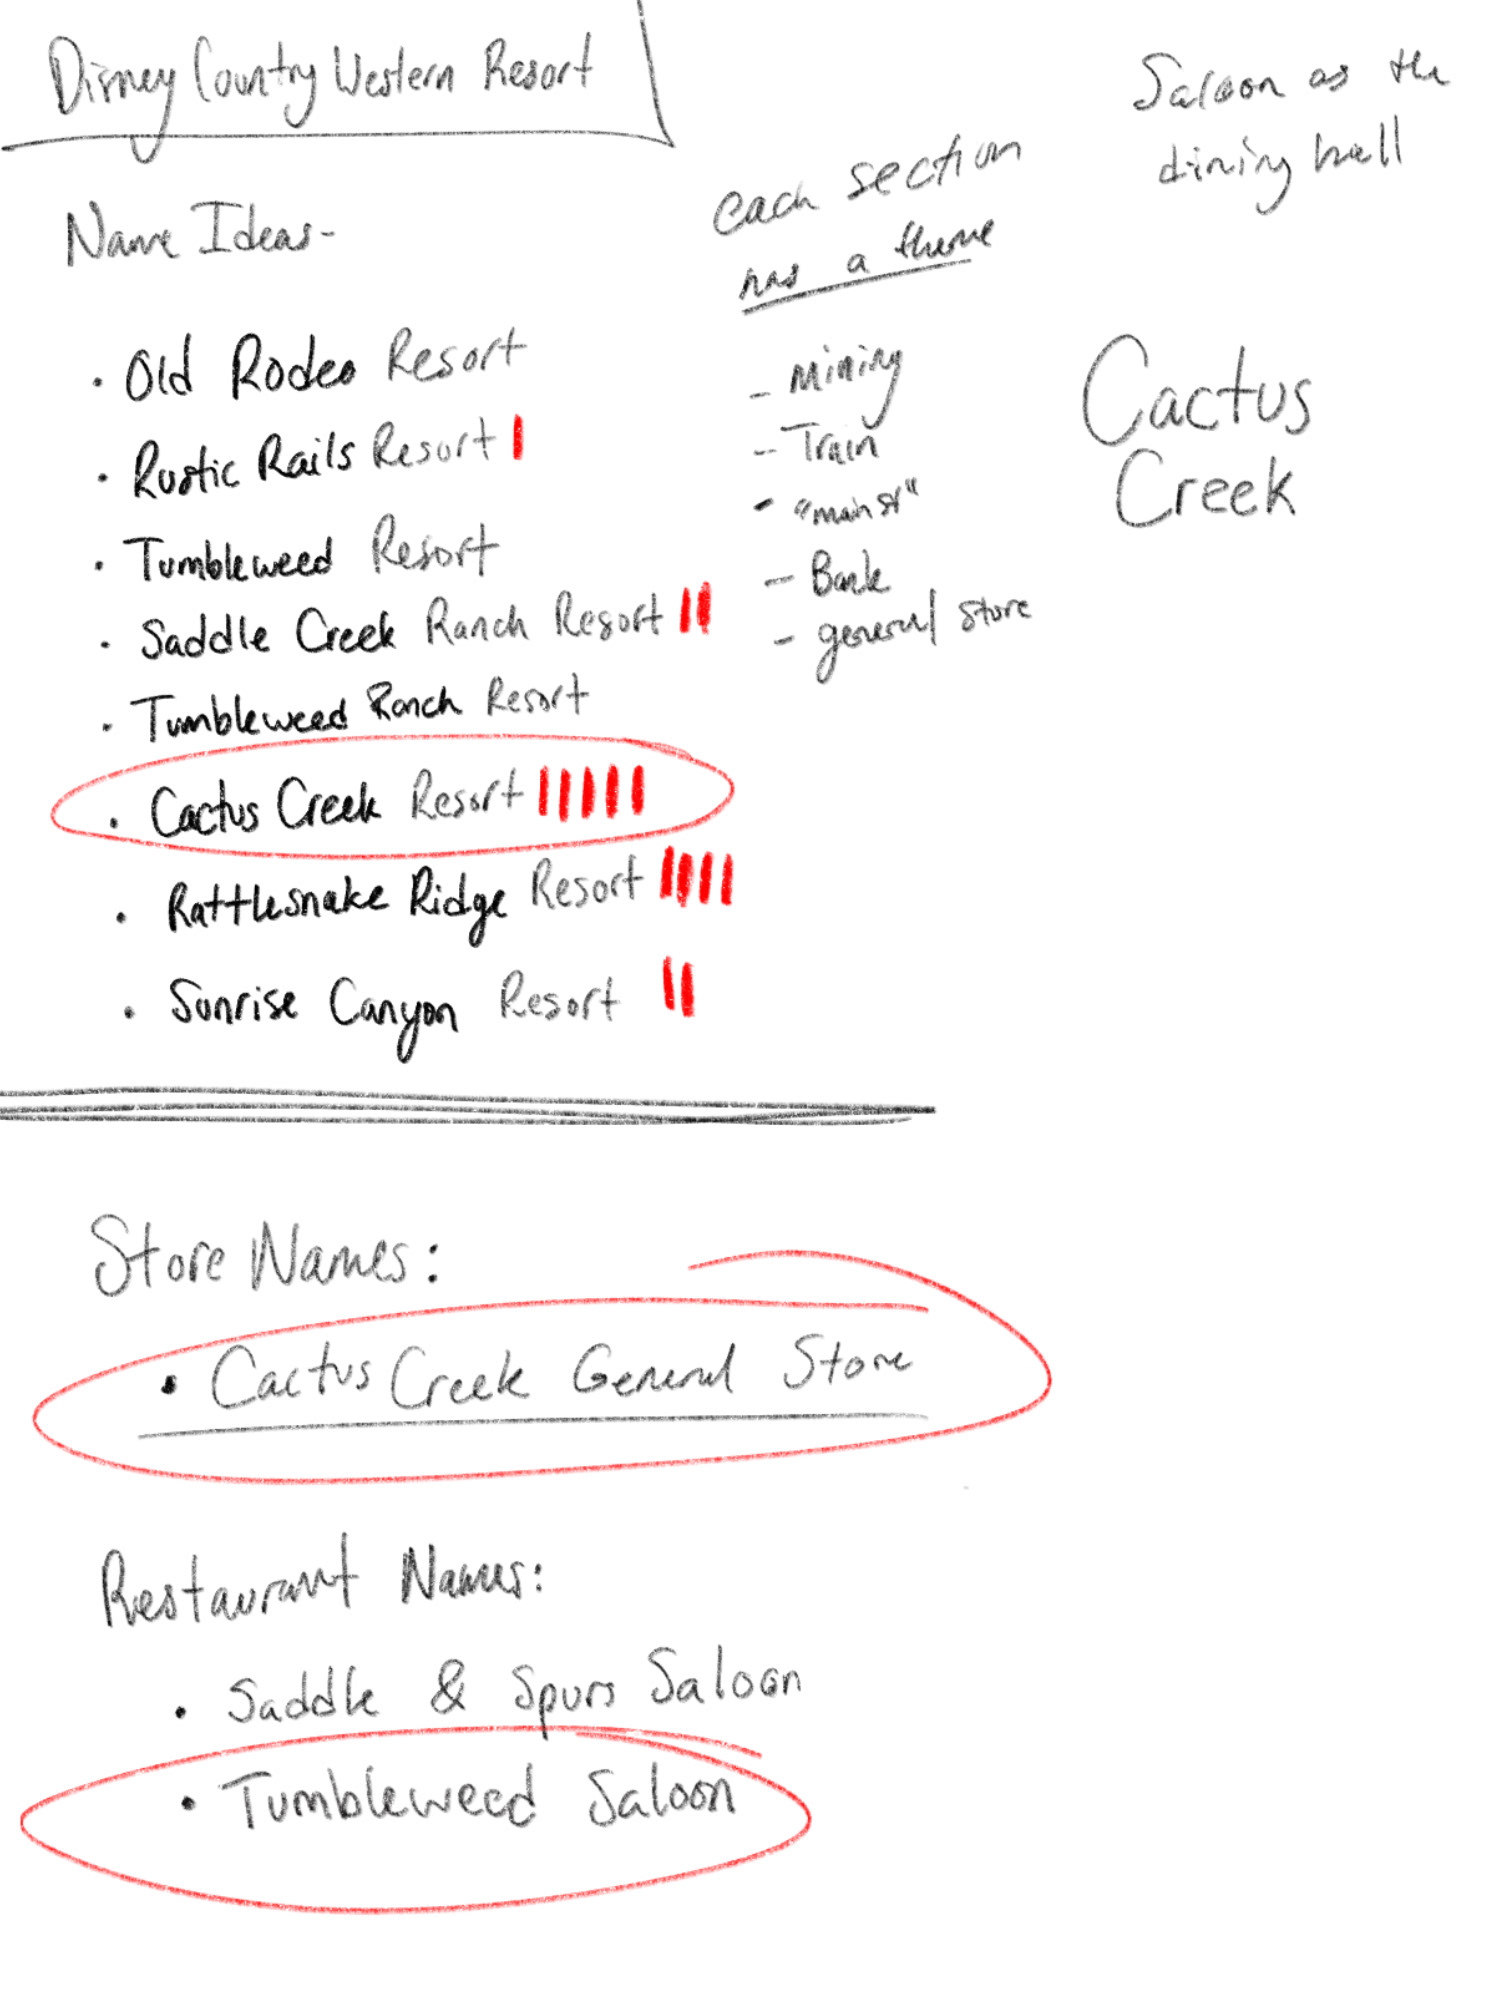 Disney Country Western Resort
Name Ideas-
• Old Rodeo Resort
• Rustic Rails Resort
• Tumbleweed Resort
• Saddle Creek Ranch Resort
• Tumbleweed Ranch Resort
• Cactus Creek Resort
• Rattlesnake Ridge Resort
• Sunrise Canyon Resort
each section
has a theme
- Mining
- Train
- "main st"
- Bank
- general store
Saloon as the
dining hall
Cactus
Creek
Store Names:
• Cactus Creek General Store
Restaurant Names:
• Saddle & Spurs Saloon
• Tumbleweed Saloon